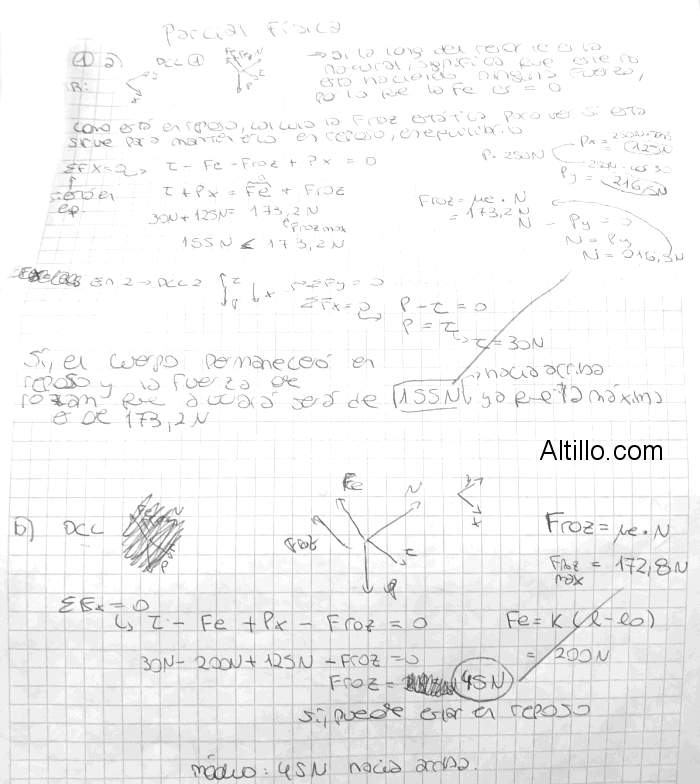 Parcial Física
① a) DCL ① Fe N → Si la long del resorte es la
natural, significa que este no
está haciendo ninguna fuerza,
R: por lo que la Fe es = 0
Como está en reposo, calculo la Froz estática para ver si esta
sirve para mantenerlo en reposo, en equilibrio
ΣFx = 0 τ - Fe - Froz + Px = 0
P = 250N Px = 125N
Py = 216,5N
τ + Px = Fe + Froz
ep.
30N + 125N = 173,2N
Froz max
155N < 173,2N
Froz = μe · N
= 173,2N
N - Py = 0
N = Py
N = 216,5N
En 2 → DCL 2 τ P x ΣFy = 0
ΣFx = 0 P - τ = 0
P = τ
τ = 30N
Sí, el cuerpo permanecerá en
reposo y la fuerza de → hacia arriba
rozam que actuará será de 155N ya que la máxima
e de 173,2N
Altillo.com
b) DCL Fe N Froz τ P x
Froz = μe · N
Froz max = 172,8N
ΣFx = 0
τ - Fe + Px - Froz = 0 Fe = K (l - l0)
30N - 200N + 125N - Froz = 0 = 200N
Froz = 45N
Sí, puede estar en reposo
módulo: 45N hacia arriba.